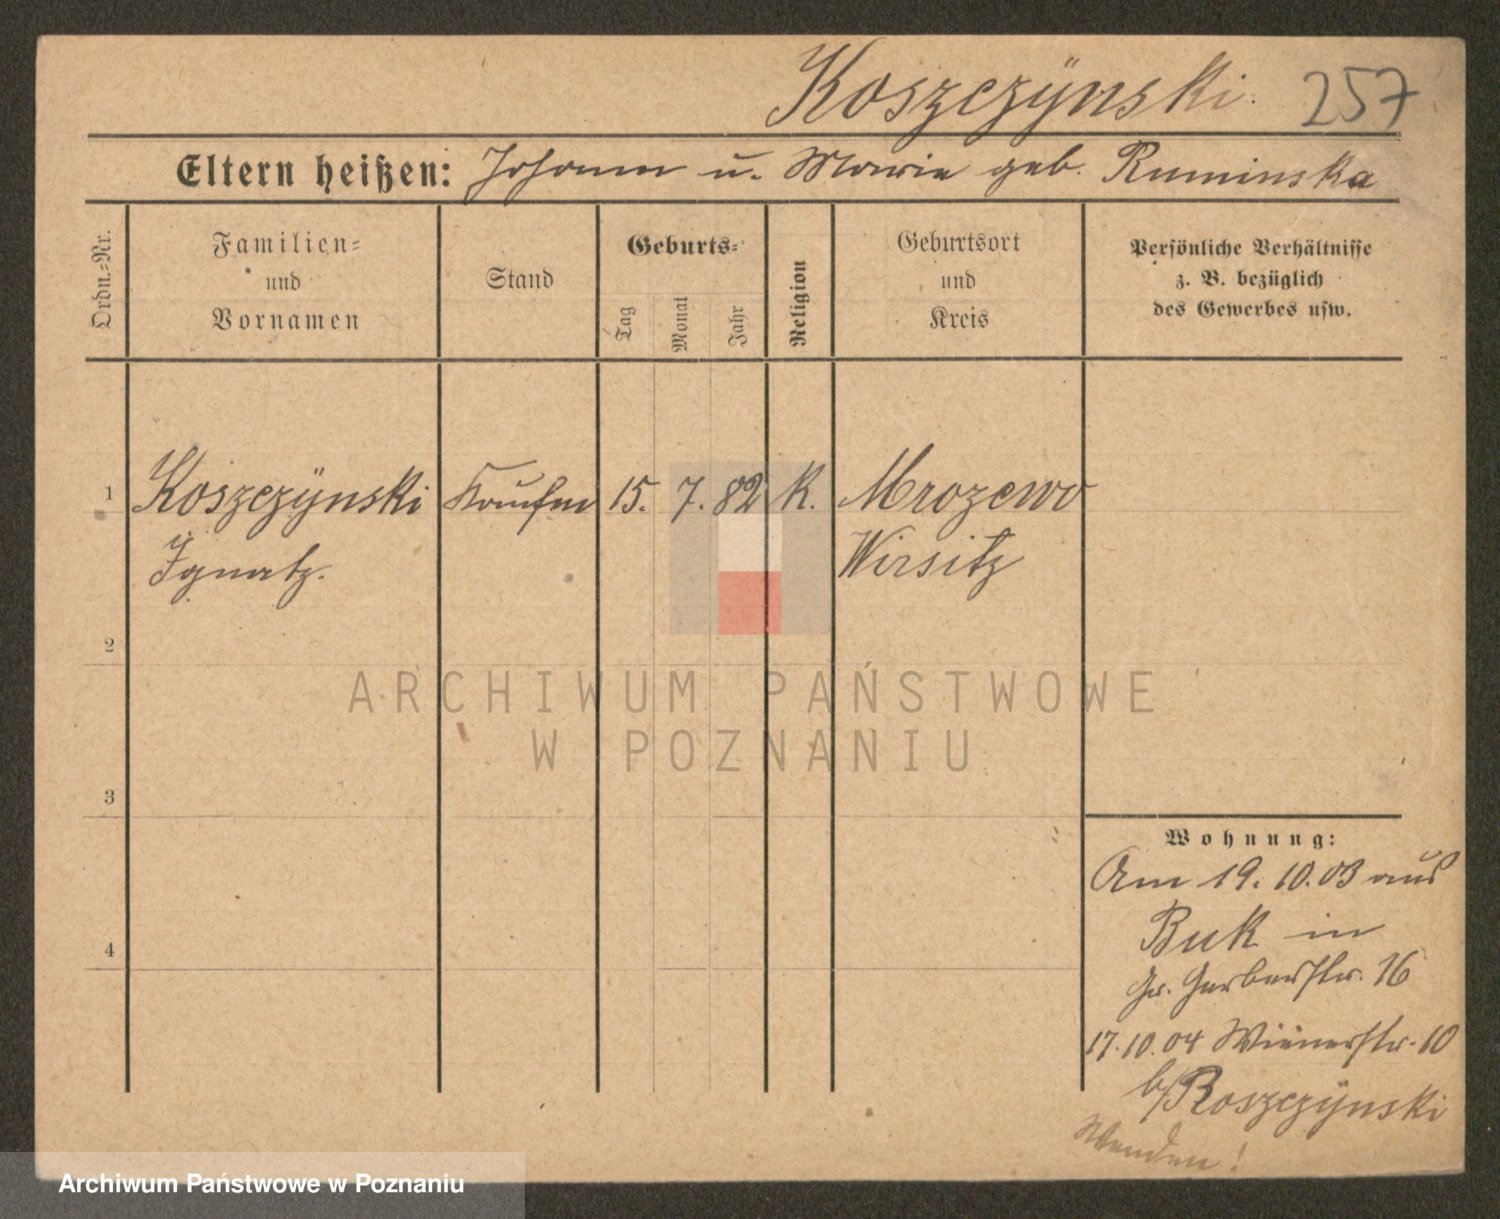 Koszczÿnski. 257
Eltern heißen: Johann u. Marie geb. Ruminska
Ordn.=Nr.
Familien=
und
Vornamen
Stand
Geburts=
Tag
Monat
Jahr
Religion
Geburtsort
und
Kreis
Persönliche Verhältnisse
z. B. bezüglich
des Gewerbes usw.
1 Koszczÿnski Kaufm 15. 7. 82 K. Mrozewo
Ignatz. Wirsitz
2
ARCHIWUM PAŃSTWOWE
W POZNANIU
3
Wohnung:
Am 19. 10. 03 aus
Buk in
4
Gr. Gerberstr. 16
17.10.04 Wienerstr. 10
b/Roszczÿnski
Wenden!
Archiwum Państwowe w Poznaniu